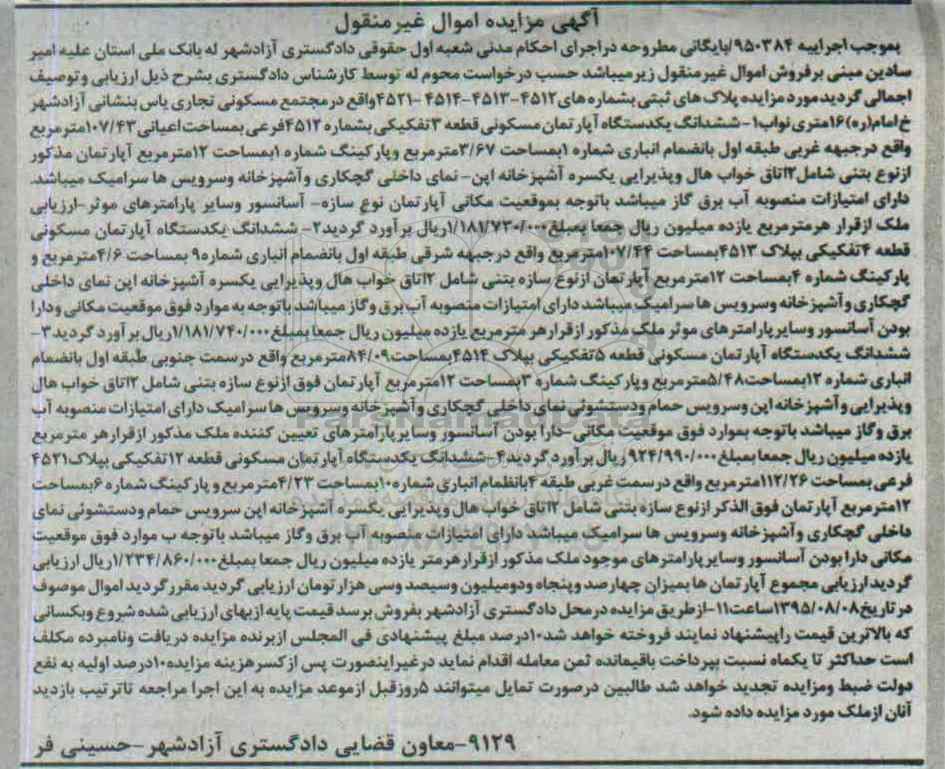 آگهی مزایده اموال غیرمنقول
بموجب اجراییه ۹۵۰۳۸۴/بایگانی مطروحه دراجرای احکام مدنی شعبه اول حقوقی دادگستری آزادشهر له بانک ملی استان علیه امیر
سادین مبنی برفروش اموال غیرمنقول زیرمیباشد حسب درخواست محکوم له توسط کارشناس دادگستری بشرح ذیل ارزیابی وتوصیف
اجمالی گردید مورد مزایده پلاک های ثبتی بشماره های ۴۵۱۲-۴۵۱۳-۴۵۱۴-۴۵۲۱واقع درمجتمع مسکونی تجاری یاس بنشانی آزادشهر
خ امام(ره)۱۶متری نواب۱-ششدانگ یکدستگاه آپارتمان مسکونی قطعه ۳تفکیکی بشماره ۴۵۱۲فرعی بمساحت اعیانی ۱۰۷/۴۳مترمربع
واقع درجبهه غربی طبقه اول بانضمام انباری شماره ۱بمساحت ۳/۶۷مترمربع وپارکینگ شماره ۱بمساحت ۱۲مترمربع آپارتمان مذکور
ازنوع بتنی شامل۲اتاق خواب هال وپذیرایی یکسره آشپزخانه اپن- نمای داخلی گچکاری وآشپزخانه وسرویس ها سرامیک میباشد.
دارای امتیازات منصوبه آب برق گاز میباشد باتوجه بموقعیت مکانی آپارتمان نوع سازه- آسانسور وسایر پارامترهای موثر-ارزیابی
ملک ازقرار هرمترمربع یازده میلیون ریال جمعا بمبلغ۱/۱۸۱/۷۳۰/۰۰۰ریال برآورد گردید۲- ششدانگ یکدستگاه آپارتمان مسکونی
قطعه ۴تفکیکی بپلاک ۴۵۱۳بمساحت ۱۰۷/۴۴مترمربع واقع درجبهه شرقی طبقه اول بانضمام انباری شماره۹ بمساحت ۴/۶مترمربع و
پارکینگ شماره ۴بمساحت ۱۲مترمربع آپارتمان ازنوع سازه بتنی شامل ۲اتاق خواب هال وپذیرایی یکسره آشپزخانه اپن نمای داخلی
گچکاری وآشپزخانه وسرویس ها سرامیک میباشد دارای امتیازات منصوبه آب برق وگاز میباشد باتوجه به موارد فوق موقعیت مکانی ودارا
بودن آسانسور وسایرپارامترهای موثر ملک مذکور ازقرارهر مترمربع یازده میلیون ریال جمعا بمبلغ ۱/۱۸۱/۷۴۰/۰۰۰ریال برآورد گردید ۳-
ششدانگ یکدستگاه آپارتمان مسکونی قطعه ۵تفکیکی بپلاک ۴۵۱۴بمساحت۸۴/۰۹مترمربع واقع درسمت جنوبی طبقه اول بانضمام
انباری شماره ۱۲بمساحت۵/۴۸مترمربع وپارکینگ شماره ۳بمساحت ۱۲مترمربع آپارتمان فوق ازنوع سازه بتنی شامل ۲اتاق خواب هال
وپذیرایی وآشپزخانه اپن وسرویس حمام ودستشوئی نمای داخلی گچکاری وآشپزخانه وسرویس ها سرامیک دارای امتیازات منصوبه آب
برق وگاز میباشد باتوجه بموارد فوق موقعیت مکانی-دارا بودن آسانسور وسایرپارامترهای تعیین کننده ملک مذکور ازقرارهر مترمربع
یازده میلیون ریال جمعا بمبلغ ۹۲۴/۹۹۰/۰۰۰ریال برآورد گردید۴-ششدانگ یکدستگاه آپارتمان مسکونی قطعه ۱۲تفکیکی بپلاک۴۵۲۱
فرعی بمساحت ۱۱۲/۲۶مترمربع واقع درسمت غربی طبقه ۴بانظمام انباری شماره۱۰بمساحت ۴/۲۳مترمربع وپارکینگ شماره ۶بمساحت
۱۲مترمربع آپارتمان فوق الذکر ازنوع سازه بتنی شامل ۲اتاق خواب هال وپذیرایی یکسره آشپزخانه اپن سرویس حمام ودستشوئی نمای
داخلی گچکاری وآشپزخانه وسرویس ها سرامیک میباشد دارای امتیازات منصوبه آب برق وگاز میباشد باتوجه ب موارد فوق موقعیت
مکانی دارا بودن آسانسور وسایرپارامترهای موجود ملک مذکور ازقرارهرمتر یازده میلیون ریال جمعا بمبلغ۱/۲۳۴/۸۶۰/۰۰۰ریال ارزیابی
گردیدارزیابی مجموع آپارتمان ها بمیزان چهارصدوپنجاه ودومیلیون وسیصد وسی هزارتومان ارزیابی گردید مقررگردید اموال موصوف
درتاریخ۱۳۹۵/۰۸/۰۸ساعت۱۱-ازطریق مزایده درمحل دادگستری آزادشهر بفروش برسد قیمت پایه ازبهای ارزیابی شده شروع وبکسانی
که بالاترین قیمت راپیشنهاد نمایند فروخته خواهد شد۱۰درصد مبلغ پیشنهادی فی المجلس ازبرنده مزایده دریافت ونامبرده مکلف
است حداکثر تا یکماه نسبت بپرداخت باقیمانده ثمن معامله اقدام نماید درغیراینصورت پس ازکسرهزینه مزایده۱۰درصد اولیه به نفع
دولت ضبط ومزایده تجدید خواهد شد طالبین درصورت تمایل میتوانند ۵روزقبل ازموعد مزایده به این اجرا مراجعه تاترتیب بازدید
آنان ازملک مورد مزایده داده شود.
۹۱۲۹-معاون قضایی دادگستری آزادشهر-حسینی فر